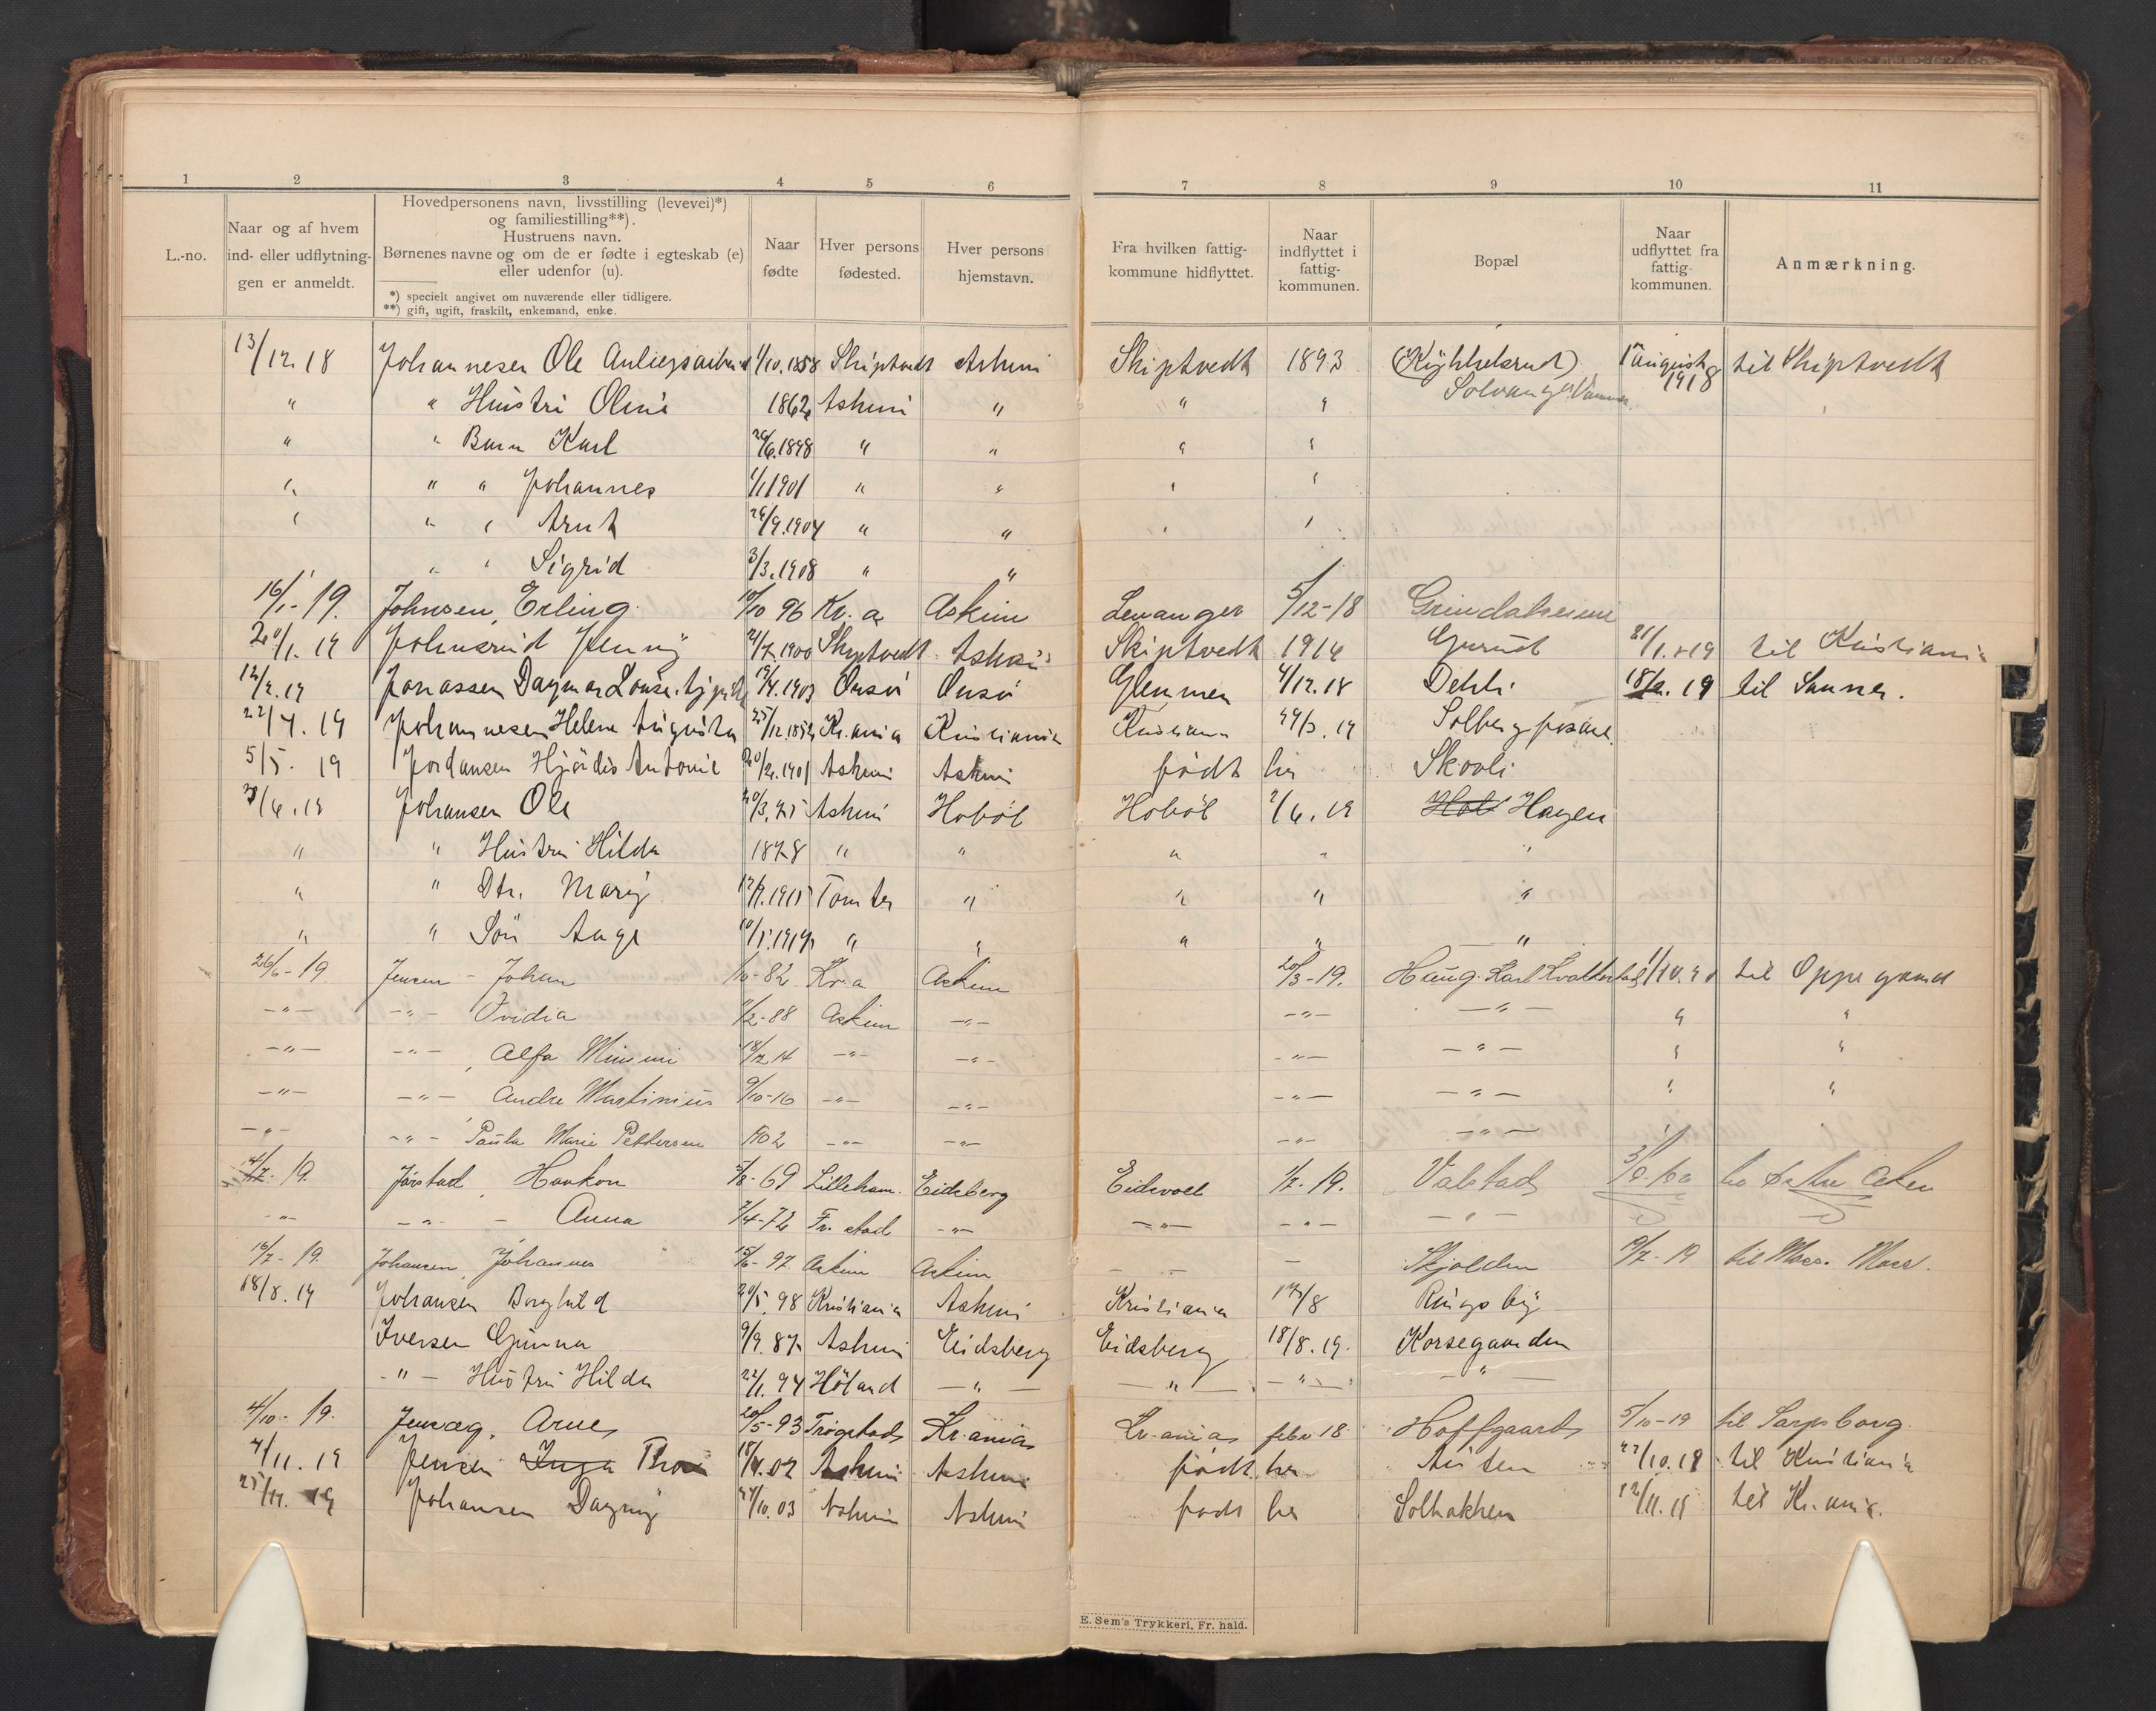 1 2 3 4 5 6 7 8 9 10 11
L.-no.
Naar og af hvem ind- eller udflytningen er anmeldt.
Hovedpersonens navn, livsstilling (levevei)*)
og familiestilling**).
Hustruens navn.
Børnenes navne og om de er fødte i egteskab (e)
eller udenfor (u).
*) specielt angivet om nuværende eller tidligere.
**) gift, ugift, fraskilt, enkemand, enke.
Naar fødte
Hver persons fødested.
Hver persons hjemstavn.
Fra hvilken fattigkommune hidflyttet.
Naar indflyttet i fattigkommunen.
Bopæl
Naar udflyttet fra fattigkommunen.
Anmærkning.
13/12.18 Johannesen Ole 1/10.1858 Skiptvedt Askim Skiptvedt 1893 (Kykkelsrud) 1 august 1918 til Skiptvedt
" " Hustri Oline 1862 Askim " " " Solvang
" " Barn Karl 1898 " " " "
" " " Johannes 1/1 1901 " " " "
" " " Arnt 1904 " " " "
" " Sigrid 3/3.1908 " "
16/1-19. Johnsen, Erling 96 Kr.a Askim Levanger 5/12-18 Grindaheim
20/1.19 Johnsrud Jenny 1900 Skiptvedt Askim Skiptvedt 1914 21/1.19 til Kristiania
12/2.19 Jonassen Dagmar Louise 1903 Onsö Onsö Glemmen 4/12.18 Dehli 18/2.19 til Sanner.
22/4.19 Johannesen Helene Augusta Kr.ania Kristiania Kristiania 19 Solbergfossen
5/5.19 Jordansen Hjördis Antonie 1901 Askim Askim født her Skovli
Johansen Ole Askim Hoböl Hoböl 2/6.19 Hagen
" " Hustru Hilda 1878 " " " " "
" " Dtr. Mary Tomter " " " "
" " Sön Aage " " " " "
26/6-19 Jensen - Johan 82 Kr.a Askim 20/3-19. Haug. Karl til Oppegaard
-"- -"- Ovidia 1/2-88 Askim -"- -"- -"- " "
-"- -"- Alfa Mimmi -"- -"- -"- -"- " "
-"- -"- Andre Martinius 9/10-16 -"- -"- -"- -"- " "
-"- -"- Paula Marie Pettersen 1902 -"- -"- -"- -"-
4/7-19. Jørstad, Haakon 69 Lilleham. Eidsberg Eidsvoll 1/7-19. Valstad
-"- -"- - Anna 7/4-72 Fr.stad -"- -"- -"- -"-
16/7-19. Johansen, Johannes 97 Askim Askim - - - Skjolden 19/7-19 til Moss. Moss.
18/8.19 Johansen Borghild 98 Kristiania Askim Kristiania 17/8 Ringsby
Iversen Gunnar 9/9.87 Askim Eidsberg Eidsberg 18/8.19. Korsegaarden
-"- Hustru Hilda 22/1.94 Höland -"- -"- -"- -"-
4/10-19. Jensæg, Arne 20/5-93 Trøgstad Kr.ania Kr.ania febr 18 Hoffgaard 5/10-19 til Sarpsborg.
4/11.19 Jensen Inga Thora 02 Askim Askim født her Austen til Kristiania
25/11.19 Johansen Dagny 03 Askim Askim født her Solbakken 12/11.19 til Kr.ania.
E. Sem's Trykkeri, Fr. hald.